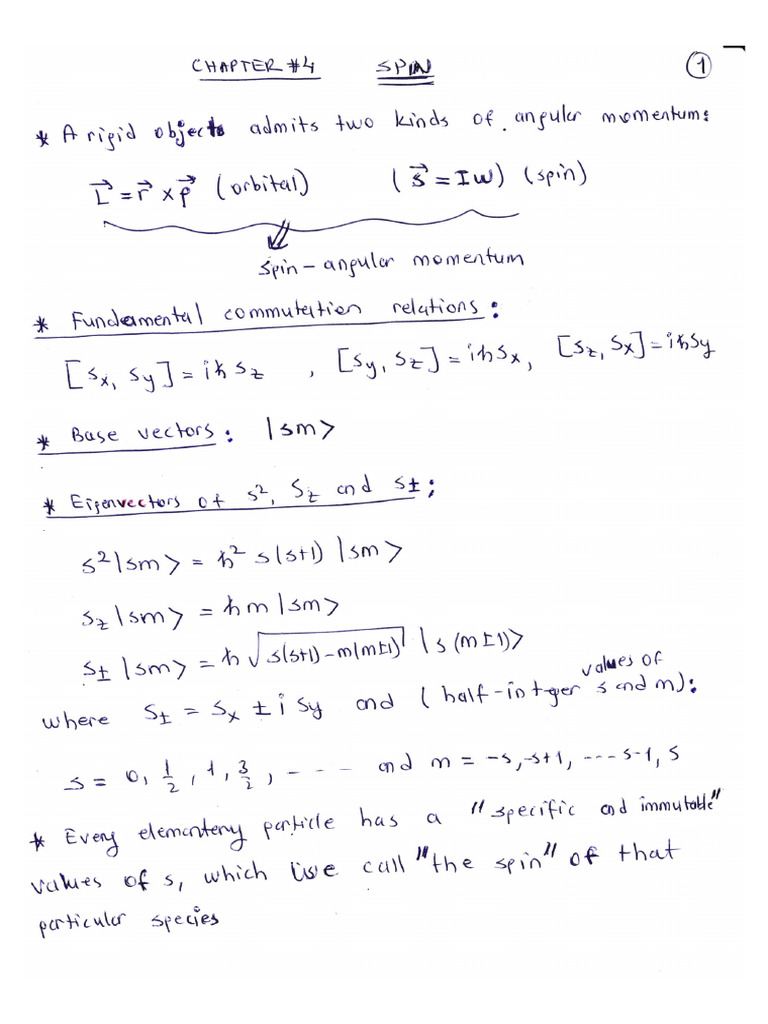 CHAPTER #4 SPIN 1
* A rigid objects admits two kinds of angular momentum:
L⃗ = r⃗ × p⃗ (orbital) (S⃗ = Iw) (spin)
⇓
spin-angular momentum
* Fundamental commutation relations:
[Sx, Sy] = iħSz , [Sy, Sz] = iħSx, [Sz, Sx] = iħSy
* Base vectors: |sm>
* Eigenvectors of S², Sz and S±;
S²|sm> = ħ² s(s+1) |sm>
Sz|sm> = ħm|sm>
S±|sm> = ħ√(s(s+1)-m(m±1)) |s(m±1)>
where S± = Sx ± i Sy and (half-integer values of s and m):
s = 0, 1/2, 1, 3/2, - - - - and m = -s, -s+1, ---- s-1, s
* Every elementery particle has a "specific and immutable"
values of s, which we call "the spin" of that
particular species